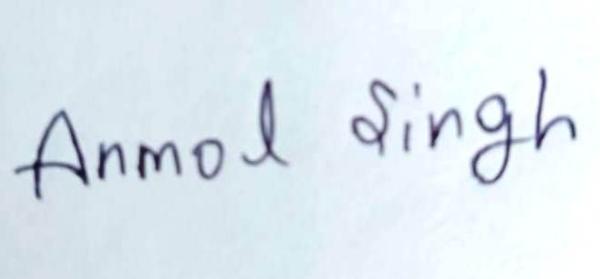 Anmol Singh